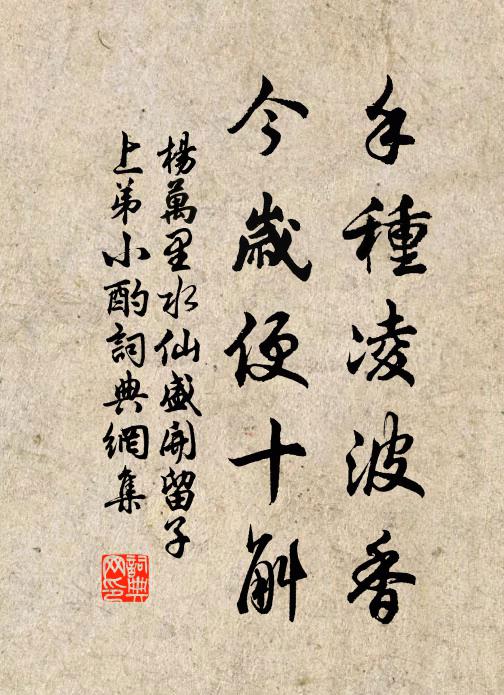 手種凌波香
今歲便十斛
楊萬里水仙盛開留子
上弟小酌詞典網集
詞典
网印